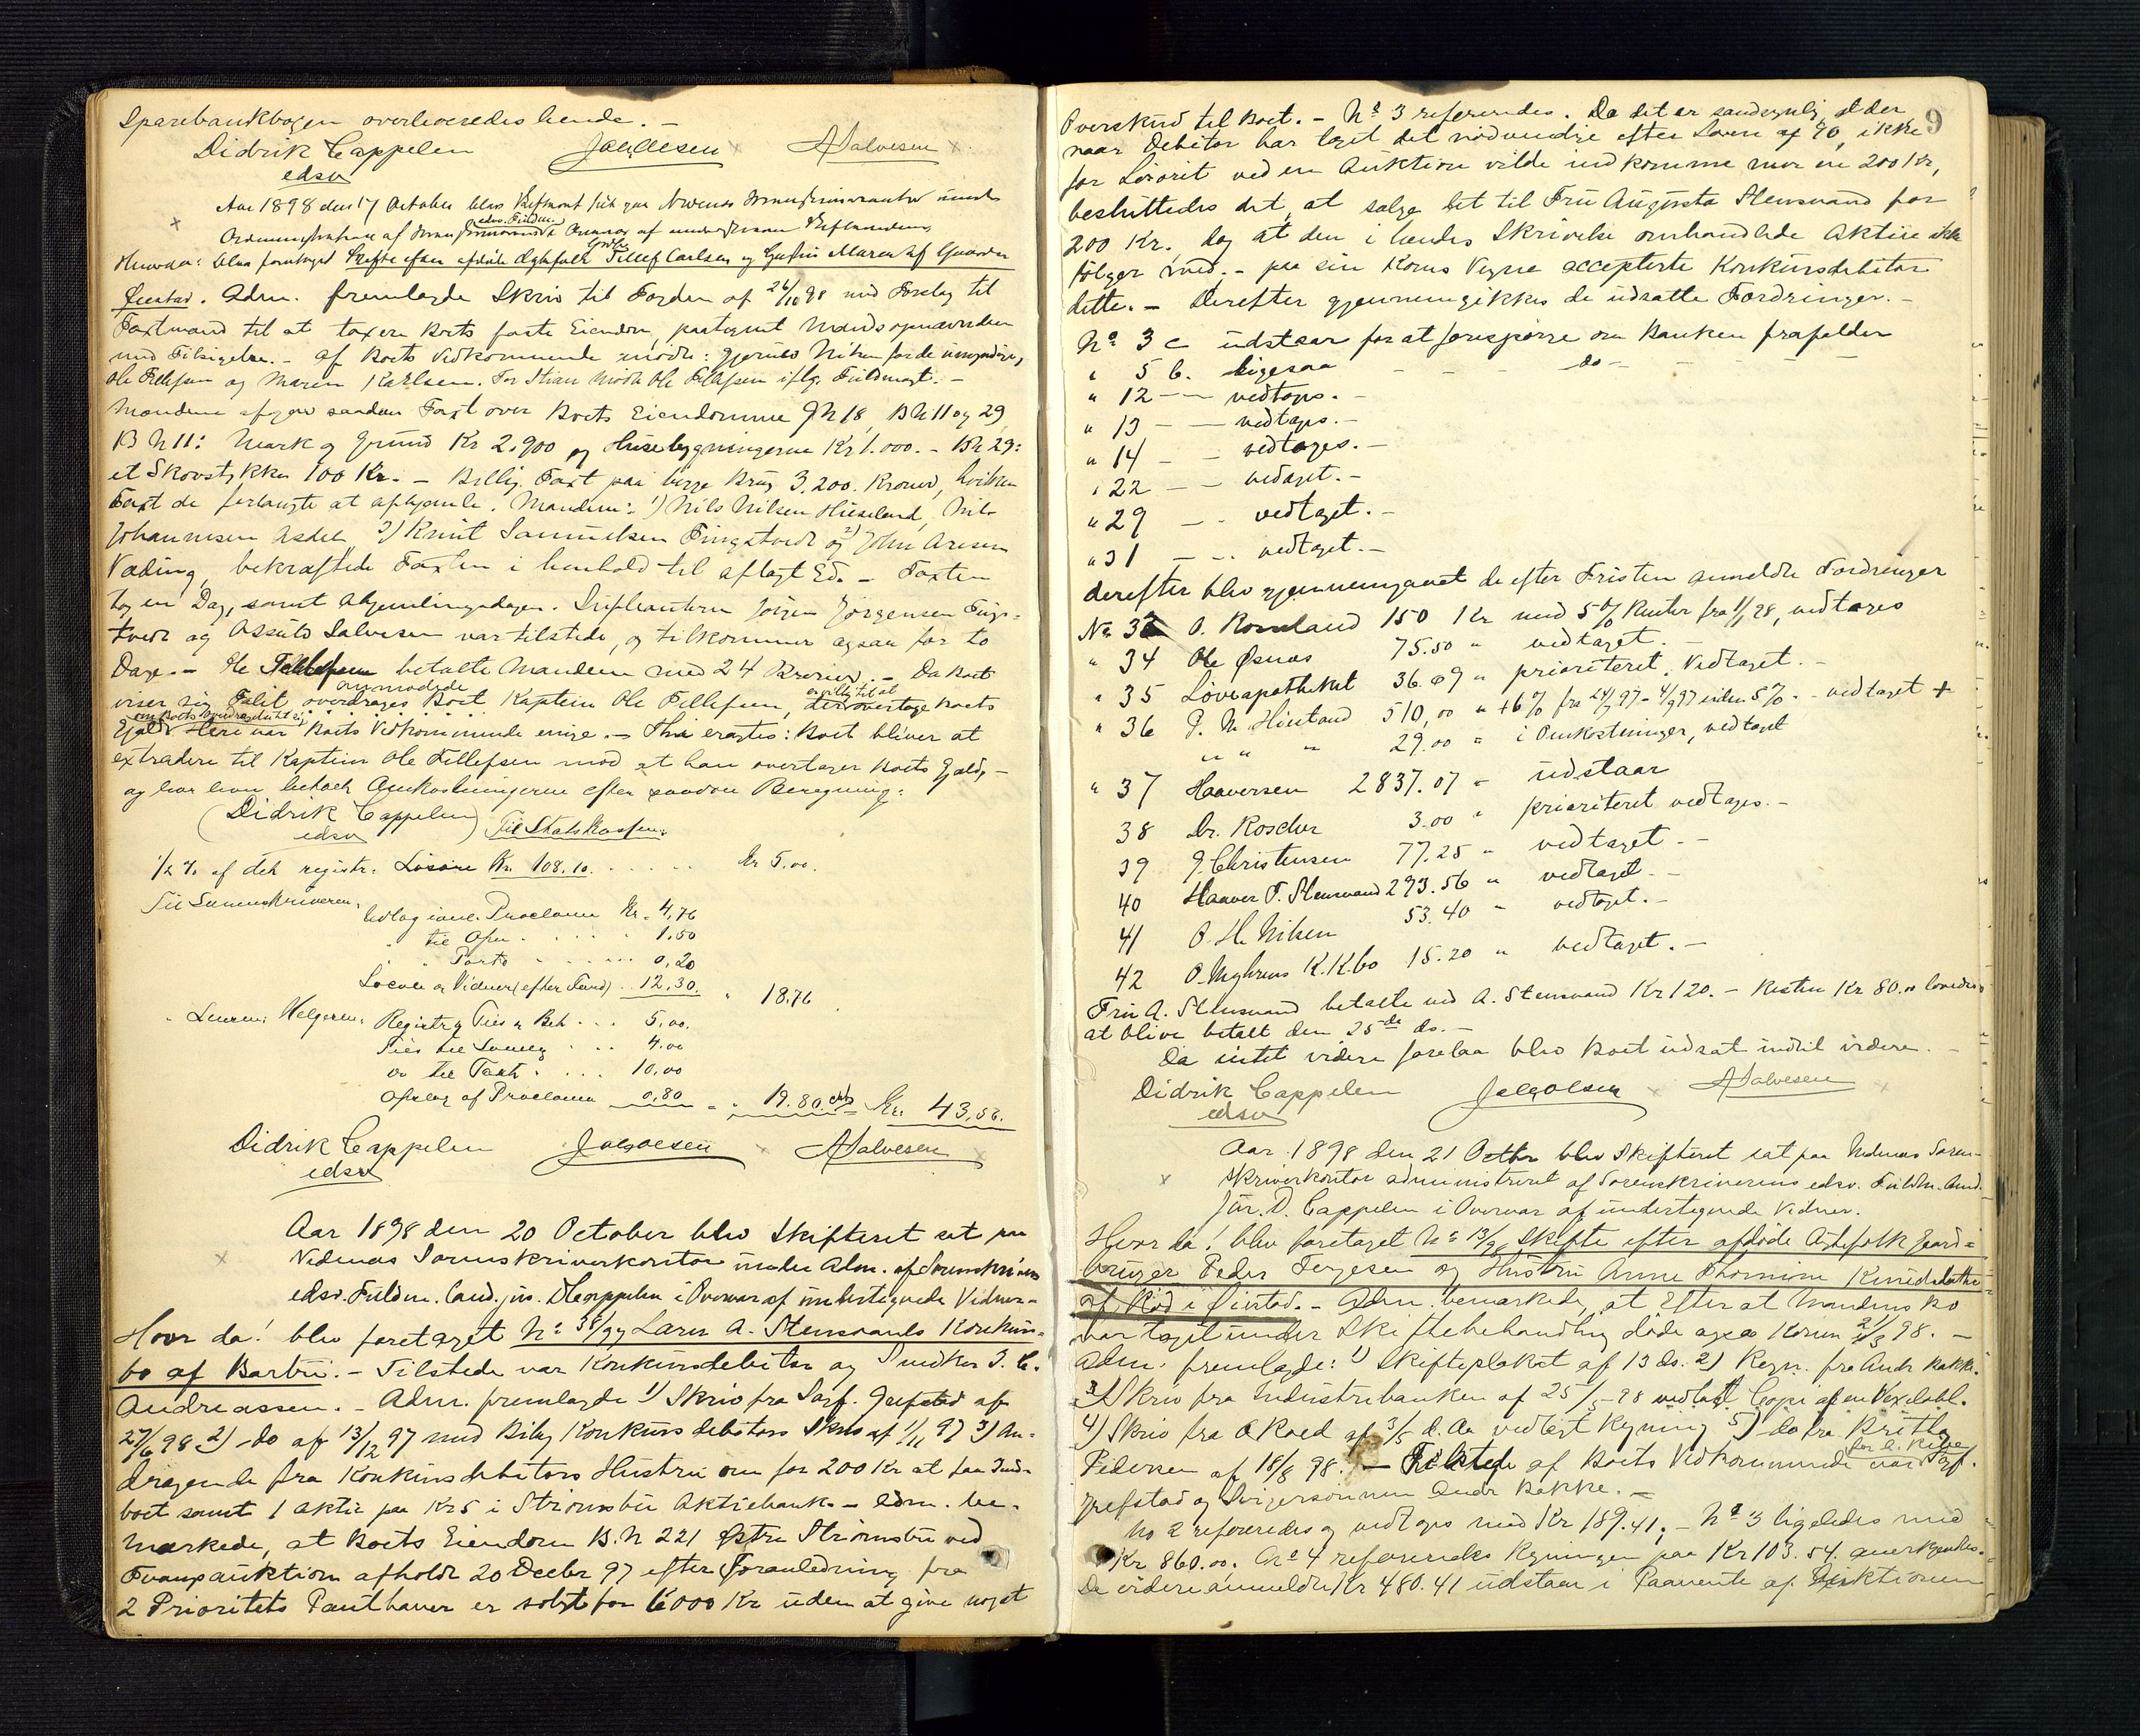 Sparebankbogen overleveredes hende. —
Didrik Cappelen   Jac Olesen   A Salvesen
edsv
Aar 1898 den 17 October blev Skifteret sat paa Nedenæs Sorenskriverkontor under
Administration af Sorenskriverens edsv. Fuldm. i Overvær af undertegnede Skiftevidner.
Hvorda: blev foretaget Skifte efter afdøde Ægtefolk Tellef Carlsen og Hustru Maren af
Øiestad. Adm. fremlagde Skriv til Fogden af 24/10 98 med Forslag til
Taxtmænd til at taxere Boets faste Eiendom, paategnet Mændsopnævnelsen
med Tilsigelse. — af Boets Vedkommende mødte: Gjerulv Nilsen for de umyndige,
Ole Tellefsen og Maren Karlsen. For mødte Ole Tellefsen iflg. Fuldmagt. —
Mændene afgav saadan Taxt over Boets Eiendomme GN 18, BN 11 og 29,
BN 11: Mark og Grund Kr 2.900 og Husebygningerne Kr 1.000. — BN 29:
et Skovstykke 100 Kr. — Billig Taxt paa begge Brug 3.200. Kroner, hvilken
Taxt de forlangte at afhjemle. Mændene: 1) Nils Nilsen Hiseland, Nils
Johannesen Asdal, 2) Knut Samuelsen Fingatvedt og 3) John Aresen
Væding, bekræftede Taxten i henhold til aflagt Ed. — Taxten
tog en Dag, samt Afhjemlingsdagen. Suppleanterne Jørgen Jørgensen
tvedt og Assuls Salvesen var tilstede, og tilkommer ogsaa for to
Dage. — Ole Tellefsen betalte Mændene med 24 Kroner. — Da Boet
viser sig Falit, anmodede Kaptein Ole Tellefsen, overtage Boets
Gjæld. Heri var Boets Vedkommende enige. — Thi eragtes: Boet bliver at
extradere til Kaptein Ole Tellefsen mod at han overtager Boets Gjæld, —
og har han betalt Omkostningerne efter saadan Beregning:
(Didrik Cappelen)   Til Statskassen:
edsv
1/2 % af det registr. Løsøre Kr. 108.10. . . . . . Kr 5.00.
Til Sorenskriveren:
Udlæg i anl. Proclama Kr. 4,76
" til Afsn . . . . . 1.50
" " Porto . . . . . 0,20
Localer og Vidner (efter Fund) . . 12,30. " 18.76
" Lensm. Helgesen: Registr. og Reis & Beh . . . 5,00.
Reis til Samling . . . 4.00
do til Taxt . . . . 10,00
Opslag af Proclama 0,80 " 19.80 Kr. 43,56.
Didrik Cappelen   Jac Olesen   A Salvesen
edsv
Aar 1898 den 20 October blev Skifteret sat paa
Nedenæs Sorenskriverkontor under Adm. af Sorenskriverens
edsv. Fuldm. Cand. jur. D Cappelen i Overvær af undertegnede Vidner. —
Hvor da! blev foretaget No 38/97 Lars A. Stensvands Konkurs-
bo af Barbu. — Tilstede var Konkursdebitor og Snedker J. C.
Andreassen. — Adm. fremlagde 1) Skriv fra Sagf. Grefstad af
27/6 98 2) do af 13/12 97 med Bilag Konkursdebitors Skriv af 1/11 97 3) An-
dragende fra Konkursdebitors Hustru om for 200 Kr at faa Ind-
boet samt 1 Aktie paa Kr 5 i Strømsbu Aktiebank. — Adm. be-
mærkede, at Boets Eiendom B.N 221 Østre Strømsbu ved
Tvangsauktion afholdt 20 Decbr 97 efter Foranledning fra
2 Prioritets Panthaver er solgt for 6000 Kr uden at give noget
9
Overskud til Boet. — No 3 refereredes. Da det er sandsynlig, at der
naar Debitor har taget det nødvendige efter Loven af 90, ikke
for Løsøret ved en Auktion vilde indkomme mer en 200 Kr,
besluttedes det, at sælge det til Fru Augusta Stensvand for
200 Kr. dog at den i hendes Skrivelse omhandlede Aktie ikke
følger med. — paa sin Kones Vegne accepterte Konkursdebitor
dette. — Derefter gjennemgikkes de udsatte Fordringer. —
No 3 c udstaar for at forespørre om Banken frafalder
" 5 b. ligesaa — — — do — — — —
" 12 — — vedtages. —
" 13 — — vedtages. —
" 14 — — vedtages. —
" 22 — — vedtaget. —
" 29 — — vedtaget. —
" 31 — — vedtaget. —
derefter blev gjennemgaaet de efter Fristen anmeldte Fordringer
No 33 O. Romland 150 Kr med 5 % Renter fra 1/1 98, vedtages
" 34 Ole Øsnæs 75.50 " vedtaget. —
" 35 Løveapotheket 36.09 " prioriteret. Vedtaget. —
" 36 P. N. Hiestand 510,00 " + 6% fra 24/7 97 – 4/9 97 siden 5%. — vedtaget +
" " " 29.00 " i Omkostninger, vedtaget
" 37 Haaversen 2837.07 " udstaar
38 Dr. Roscher 3.00 " prioriteret vedtages. —
39 J. Christensen 77.25 " vedtaget. —
40 Haaver T. Stensvand 293.56 " vedtaget. —
41 O. H. Nilsen 53.40 " vedtaget. —
42 O. Myhrens K.K.bo 15.20 " vedtaget. —
Fru A. Stensvand betalte ved A. Stensvand Kr 120. — Resten Kr 80.00 lovedes
at blive betalt den 25de ds. —
Da intet videre forelaa blev Boet udsat indtil videre. —
Didrik Cappelen   Jac Olesen   A Salvesen
edsv
Aar 1898 den 21 Octbr blev Skifteret sat paa Nedenæs Soren-
skriverkontor administreret af Sorenskriverens edsv. Fuldm. Cand.
jur. D. Cappelen i Overvær af undertegnede Vidner.
Hvor da! blev foretaget No 13/98 Skifte efter afdøde Ægtefolk Gaard-
bruger Peder Terjesen og Hustru Anne Thomine Knudsdatter
af Rød i Øiestad. — Adm. bemærkede, at Efter at Mandens Bo
var taget under Skiftebehandling døde ogsaa Konen 21/3 98. —
Adm. fremlagde: 1) Skifteplakat af 13 ds. 2) Regn. fra Andr Bakke.
3) Skriv fra Industribanken af 25/5 98 vedlagt Copi af en Vexelobl.
4) Skriv fra O Roed af 3/5 d. Aa vedlagt Regning 5) do fra Britha
Pedersen af 18/8 98. — Tilstede af Boets Vedkommende var Sagf.
Grefstad og Svigersønnen Andr Bakke. —
No 2 refereredes og vedtages med Kr 189.41. — No 3 ligeledes med
Kr. 860.00. No 4 refereredes Regningen paa Kr 103.54. anerkjendes.
De videre anmeldte Kr 480.41 udstaar i Paavente af Auktionen